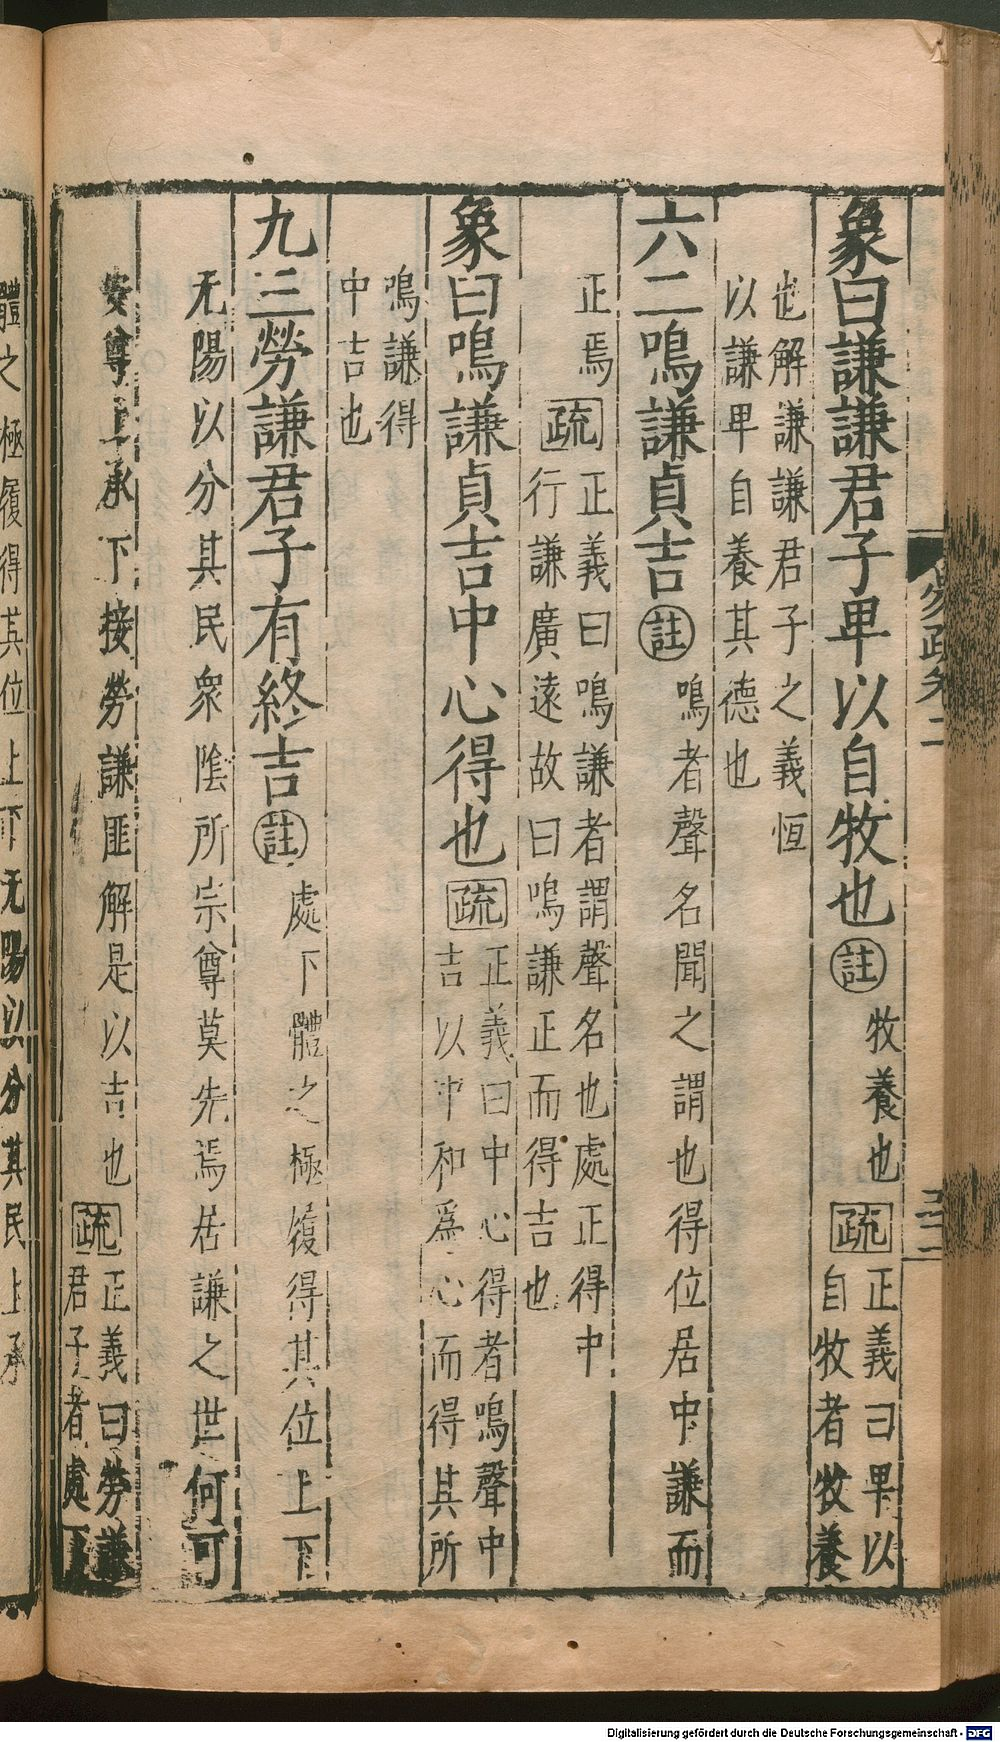 象曰謙謙君子卑以自牧也註牧養也疏正義曰卑以
自牧者牧養
也解謙謙君子之義恒
以謙卑自養其德也
六二鳴謙貞吉註鳴者聲名聞之謂也得位居中謙而
正焉疏正義曰鳴謙者謂聲名也處正得中
行謙廣遠故曰鳴謙正而得吉也
象曰鳴謙貞吉中心得也疏正義曰中心得者鳴聲中
吉以中和爲心而得其所
鳴謙得
中吉也
九三勞謙君子有終吉註處下體之極履得其位上下
无陽以分其民衆陰所宗尊莫先焉居謙之世何可
安尊上承下接勞謙匪解是以吉也疏正義曰勞謙
君子者處下
體之極履得其位上下无陽以分其民上承
易疏卷二
Digitalisierung gefördert durch die Deutsche Forschungsgemeinschaft - DFG